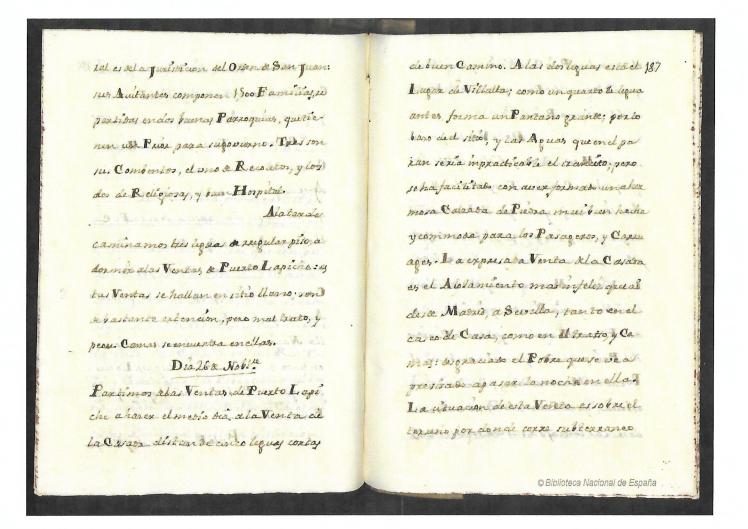 tal es de la Jurisdiccion del Orden de San Juan:
sus Avitantes componen 1500 Familias, re
partidas en dos buenas Parroquias, que tie
nen un Prior para su govierno. Tres son
sus Combentos, el uno de Recoletos, y los
dos de Religiosas, y buen Hospital.
A la tarde
caminamos tres leguas de regular piso, a
dormir a las Ventas de Puerto Lapiche: es
tas Ventas se hallan en sitio llano, son
de bastante extención, pero mal trato, y
peor. Camas se encuentra en ellas.
Dia 26 de Nobre.
Partimos de las Ventas de Puerto Lapi
che a hacer el medio dia, a la Venta de
la Casada distan de cinco leguas cortas
de buen Camino. A las dos leguas está el
187
Lugar de Villalta; como un quarto de legua
antes forma un Pantano grande; por lo
baxo del sitio, y las Aguas que en el pa
ran seria impracticable el transito; pero
se ha facilitado con aver formado una her
mosa Calzada de Piedra mui bien hecha
y commoda para los Pasageros, y Carru
ages. La expresada Venta de la Casada
es el Alojamiento mas infeliz que ai
desde Madrid, a Sevilla, tanto en el
casco de Casa, como en el trato, y Ca
mas: desgraciado el Pobre que se ve a
presisado a pasar la noche en ella.
La situacion de esta Venta es sobre el
terreno por donde corre subterraneo
© Biblioteca Nacional de España